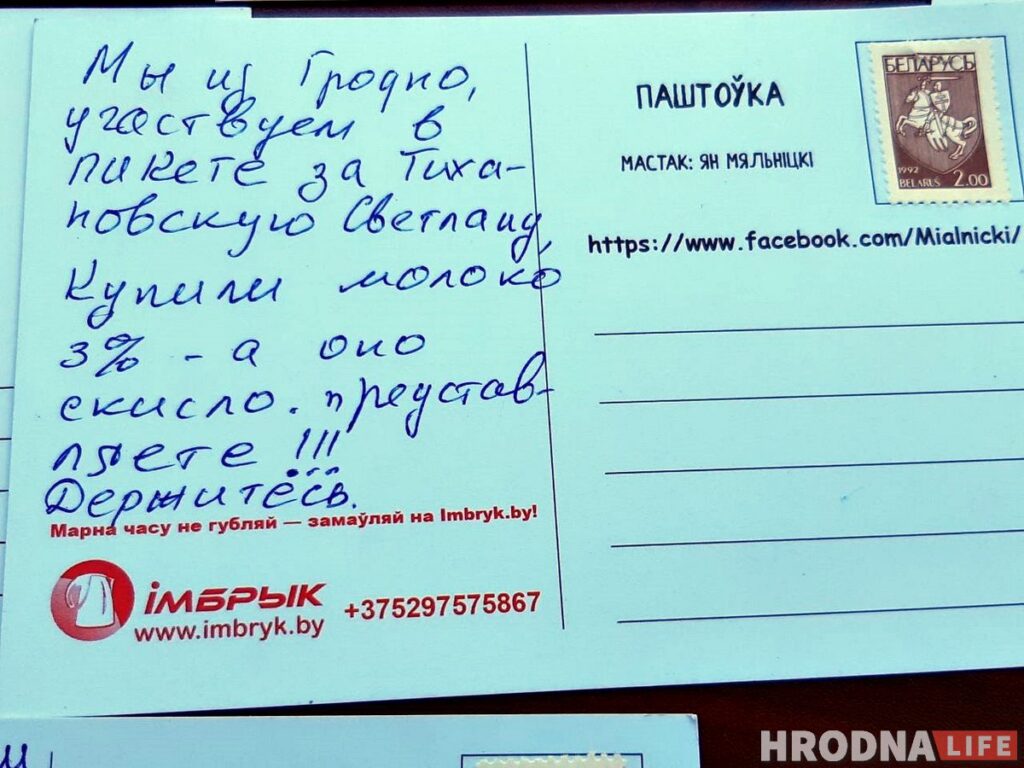 Мы из Гродно,
участвуем в
пикете за Тиха-
новскую Светлану,
Купили молоко
3% - а оно
скисло. представ-
ляете !!!
Держитесь.
Марна часу не губляй — замаўляй на Imbryk.by!
імбрык
www.imbryk.by
+375297575867
ПАШТОЎКА
МАСТАК: ЯН МЯЛЬНІЦКІ
https://www.facebook.com/Mialnicki/
БЕЛАРУСЬ
1992
BELARUS 2.00
HRODNA LIFE